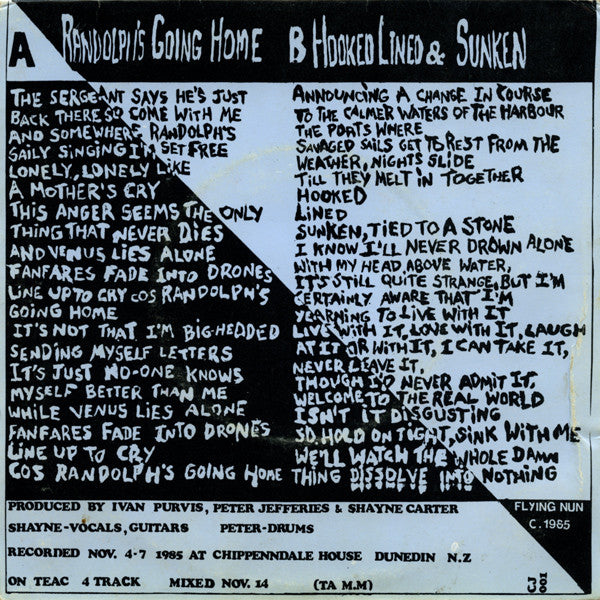 A RANDOLPH'S GOING HOME
THE SERGEANT SAYS HE'S JUST
BACK THERE SO COME WITH ME
AND SOMEWHERE RANDOLPH'S
GAILY SINGING I'M SET FREE
LONELY, LONELY LIKE
A MOTHER'S CRY
THIS ANGER SEEMS THE ONLY
THING THAT NEVER DIES
AND VENUS LIES ALONE
FANFARES FADE INTO DRONES
LINE UP TO CRY COS RANDOLPH'S
GOING HOME
IT'S NOT THAT I'M BIG-HEADED
SENDING MYSELF LETTERS
IT'S JUST NO-ONE KNOWS
MYSELF BETTER THAN ME
WHILE VENUS LIES ALONE
FANFARES FADE INTO DRONES
LINE UP TO CRY
COS RANDOLPH'S GOING HOME
B HOOKED LINED & SUNKEN
ANNOUNCING A CHANGE IN COURSE
TO THE CALMER WATERS OF THE HARBOUR
THE PORTS WHERE
SAVAGED SAILS GET TO REST FROM THE
WEATHER, NIGHTS SLIDE
TILL THEY MELT IN TOGETHER
HOOKED
LINED
SUNKEN, TIED TO A STONE
I KNOW I'LL NEVER DROWN ALONE
WITH MY HEAD ABOVE WATER,
IT'S STILL QUITE STRANGE, BUT I'M
CERTAINLY AWARE THAT I'M
YEARNING TO LIVE WITH IT
LIVE WITH IT, LOVE WITH IT, LAUGH
AT IT OR WITH IT, I CAN TAKE IT,
NEVER LEAVE IT,
THOUGH I'D NEVER ADMIT IT.
WELCOME TO THE REAL WORLD
ISN'T IT DISGUSTING
SO, HOLD ON TIGHT, SINK WITH ME
WE'LL WATCH THE WHOLE DAMN
THING DISSOLVE INTO NOTHING
PRODUCED BY IVAN PURVIS, PETER JEFFERIES & SHAYNE CARTER
SHAYNE-VOCALS, GUITARS PETER-DRUMS
RECORDED NOV. 4-7 1985 AT CHIPPENNDALE HOUSE DUNEDIN N.Z
ON TEAC 4 TRACK MIXED NOV. 14 (TA M.M)
FLYING NUN
C. 1985
CJ 001